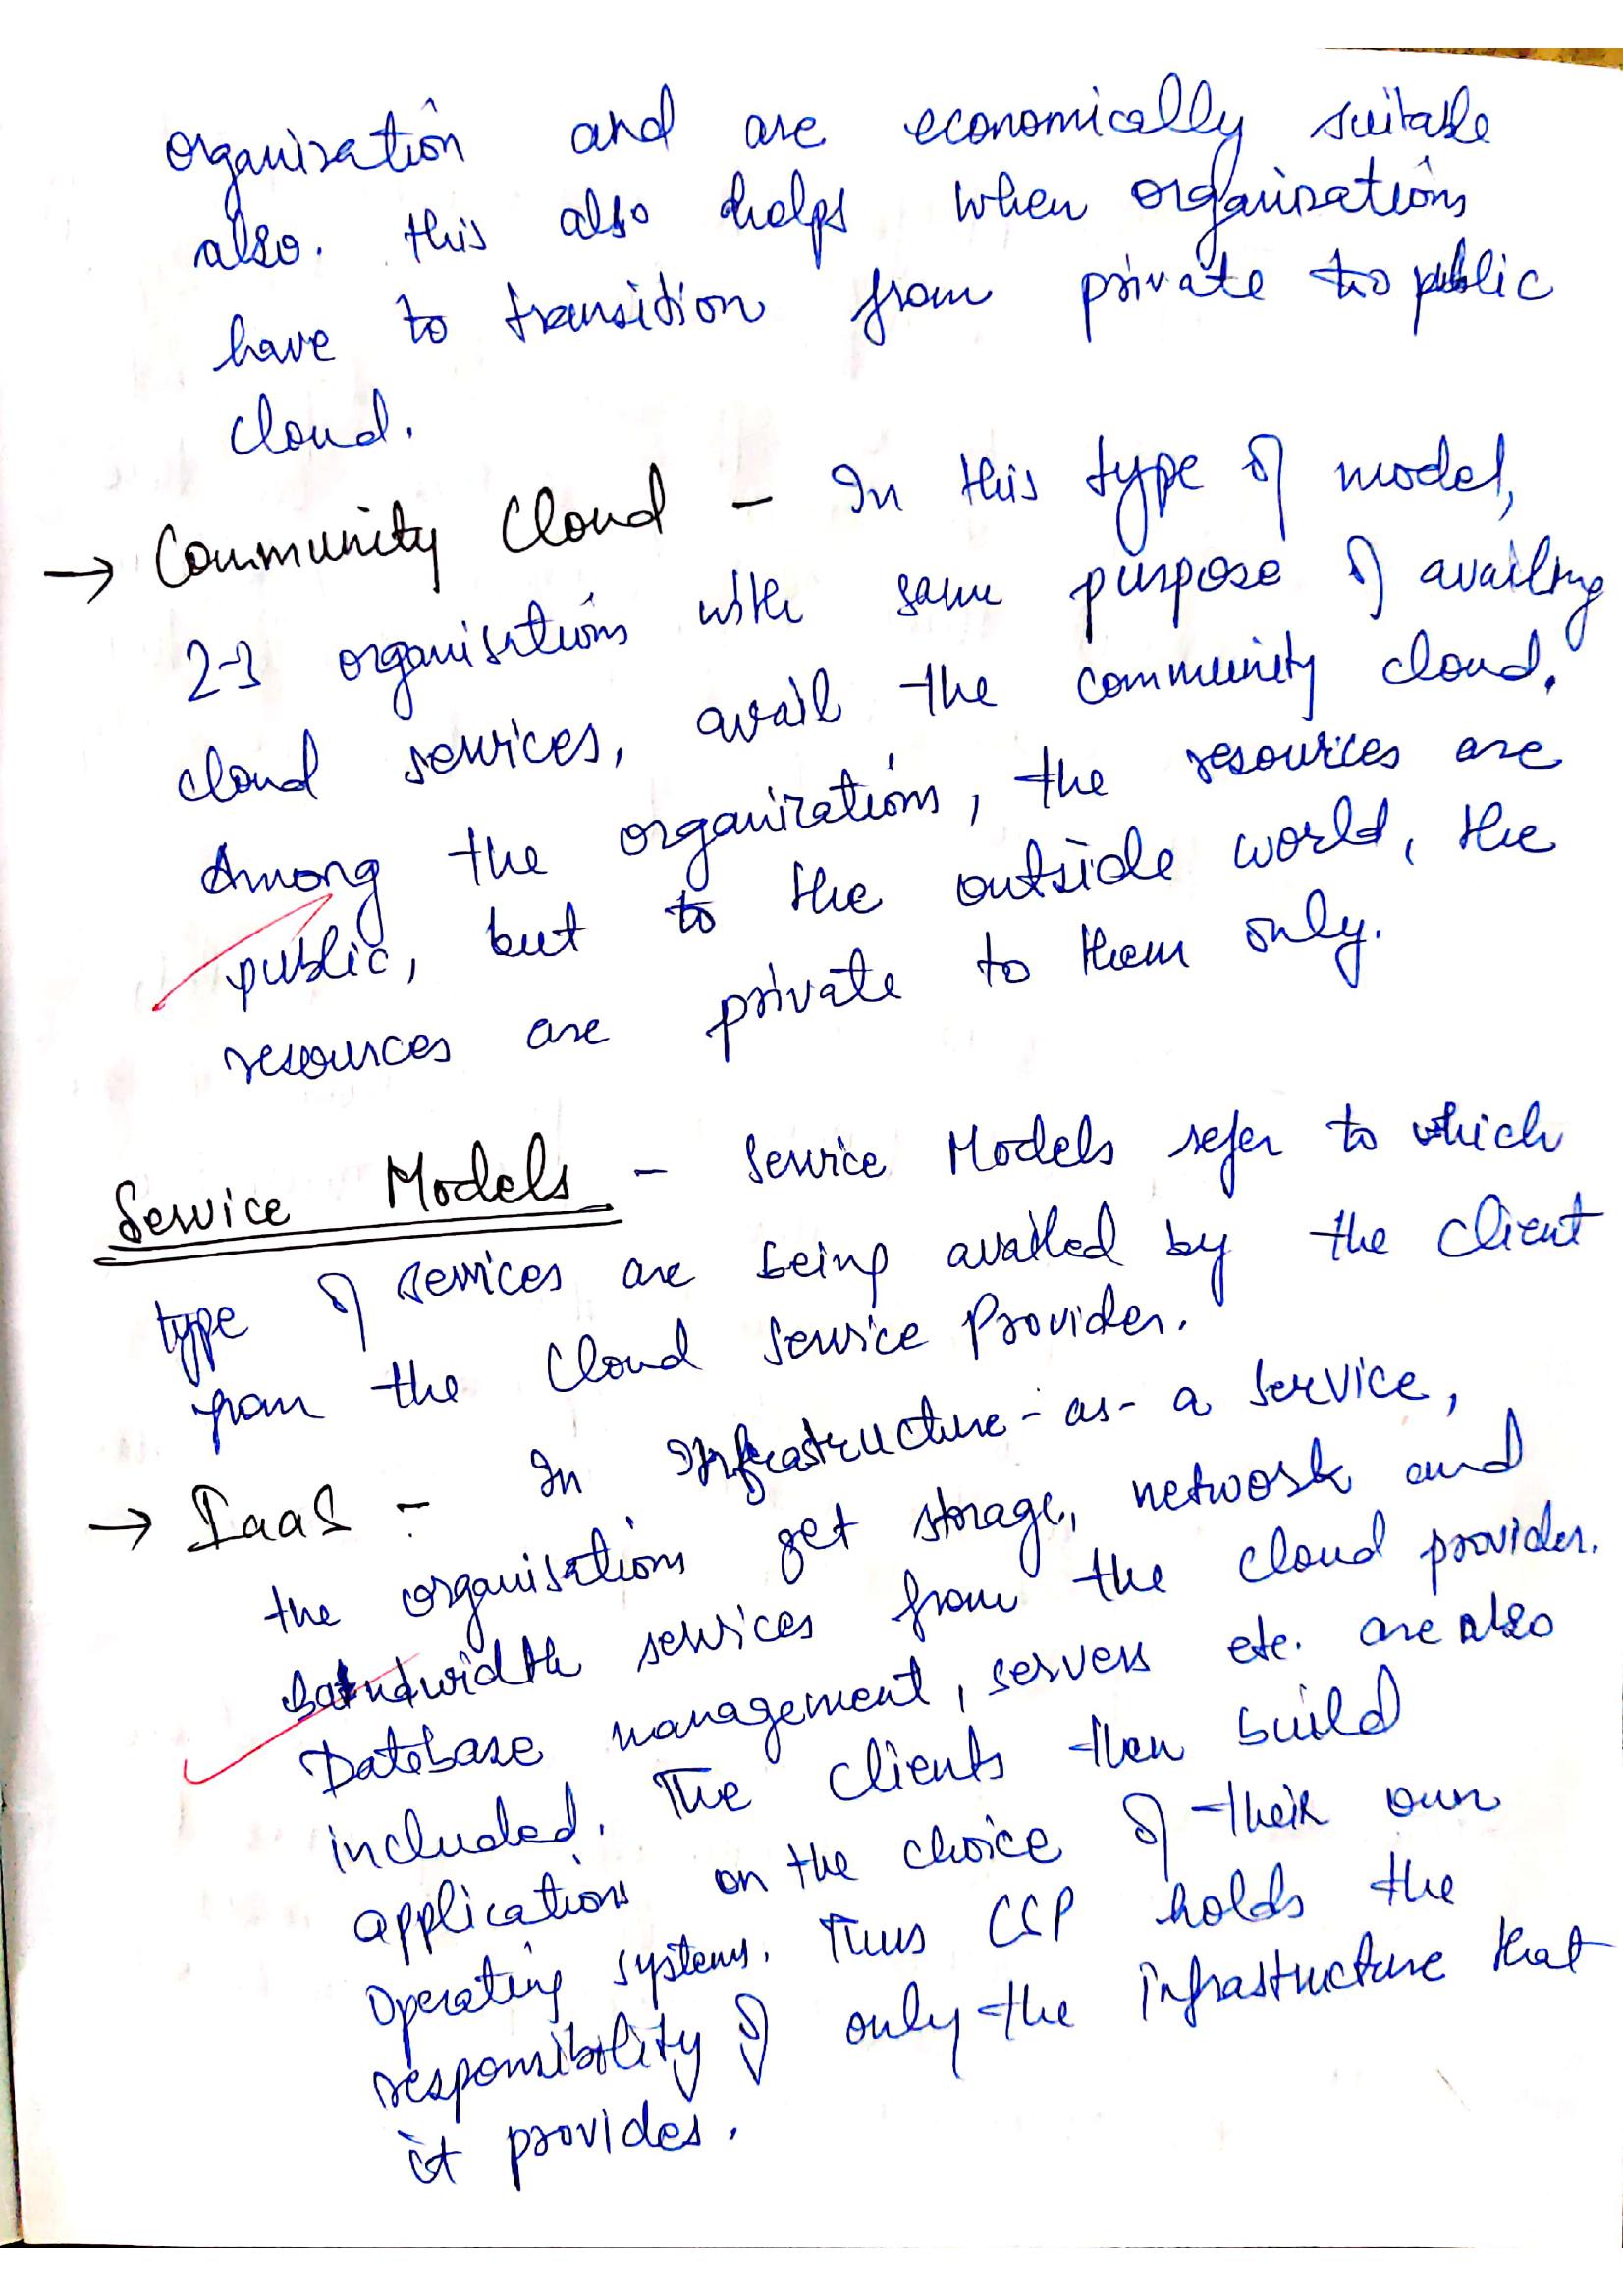 organisation and are economically suitable
also. this also helps when organisations
have to transition from private to public
cloud.
→ Community Cloud - In this type of model,
2-3 organisations with same purpose of availing
cloud services, avail the community cloud.
Among the organizations, the resources are
public, but to the outside world, the
resources are private to them only.
Service Models - Service Models refer to which
type of services are being availed by the client
from the Cloud Service Provider.
→ IaaS - In Infrastructure-as-a Service,
the organisations get storage, network and
bandwidth services from the cloud provider.
Database management, servers etc. are also
included. The clients then build
applications on the choice of their own
Operating systems. Thus CSP holds the
responsibility of only the infrastructure that
it provides.